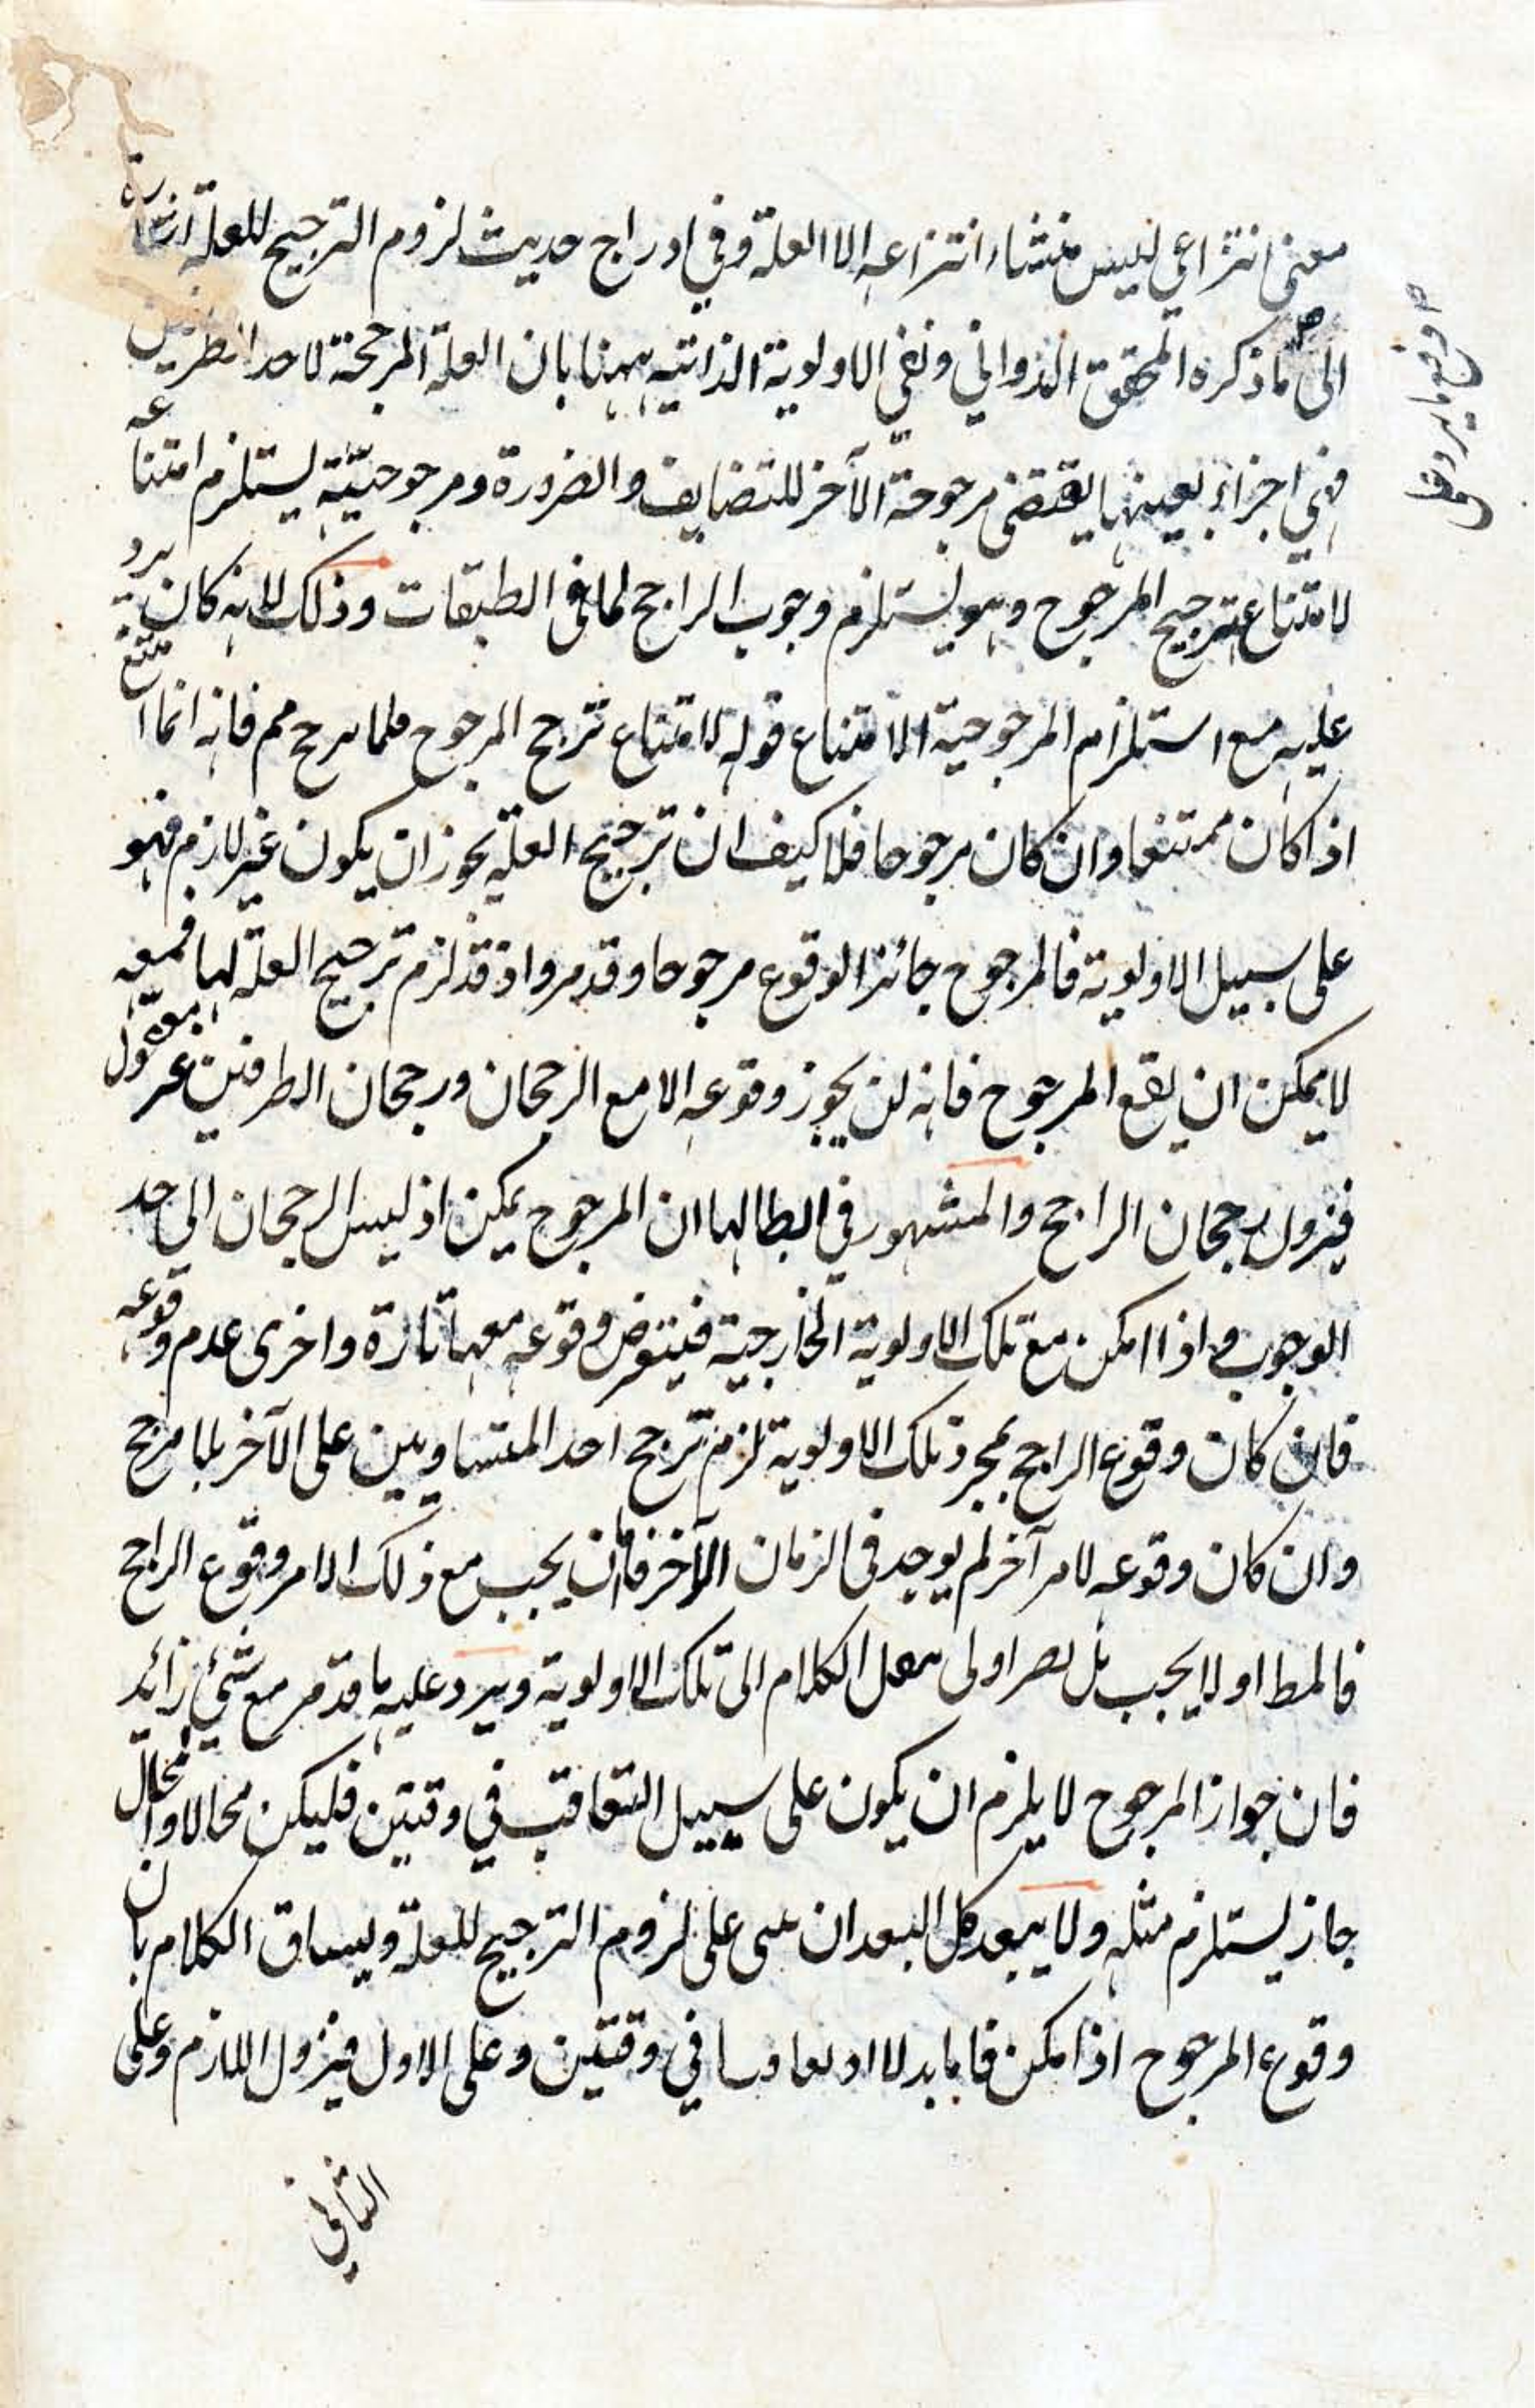 معنى انتزاعي ليس منشاء انتزاعه الا العلة وفي ادراج حديث لزوم الترجيح للعلة اشارة
الى ما ذكره المحقق الدواني ونفي الاولوية الذاتية ههنا بان العلة المرجحة لاحد الطرفين
فهي اجزاء بعينها يقتضى مرجوحة الآخر للتضايف والضرورة ومرجوحيته يستلزم امتناعه
لامتناع ترجيح المرجوح وهو يستلزم وجوب الراجح لما في الطبقات وذلك لانه كان يرد
عليه مع استلزام المرجوحية الامتناع قوله لامتناع ترجح المرجوح فانه انما امتنع
اذا كان ممتنعا وان كان مرجوحا فلا كيف ان ترجيح العلة يجوز ان يكون غير لازم فهو
على سبيل الاولوية فالمرجوح جائز الوقوع مرجوحا وقد مر واذ قد لزم ترجيح العلة لها فمعه
لا يمكن ان يقع المرجوح فانه لن يجوز وقوعه الا مع الرجحان ورجحان الطرفين غير معقول
فيزول رجحان الراجح والمشهور في ابطالها ان المرجوح يمكن اذ ليس الرجحان الى حد
الوجوب و اذا امكن مع تلك الاولوية الخارجية فيتفرض وقوعه معها تارة واخرى عدم وقوعه
فان كان وقوع الراجح بمجرد تلك الاولوية لزم ترجح احد المتساويين على الآخر بلا مرجح
وان كان وقوعه لامر آخر لم يوجد في الزمان الآخر فاما ان يجب مع ذلك الامر وقوع الراجح
فالمط او لا يجب بل يصر اولى ينقل الكلام الى تلك الاولوية ويرد عليه ما قد مر مع شيئ زائد
فان جواز المرجوح لا يلزم ان يكون على سبيل التعاقب في وقتين فليكن محالا والمحال
جاز يستلزم مثله ولا يبعد كل البعد ان يبنى على لزوم الترجيح للعلة ويساق الكلام بان
وقوع المرجوح اذا مكن فاما بدلا او تعاقبا في وقتين وعلى الاول فيزول اللازم وعلى
الثاني